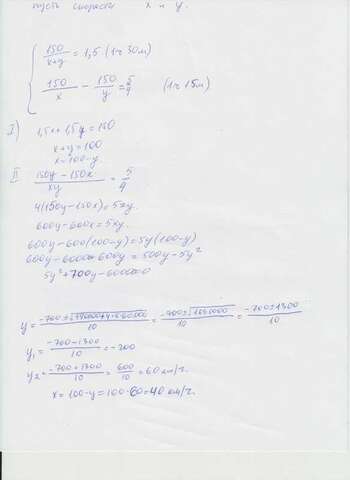 пусть скорости x и y.
150/(x+y) = 1,5 (1ч 30м)
150/x - 150/y = 5/4 (1ч 15м)
I) 1,5x+1,5y=150
x+y=100
x=100-y
II (150y-150x)/xy = 5/4
4(150y-150x)=5xy.
600y-600x=5xy.
600y-600(100-y)=5y(100-y)
600y-60000+600y=500y-5y²
5y²+700y-60000=0
y = = (-700±√1690000)/10 = (-700±1300)/10
y₁ = (-700-1300)/10 = -200
y₂ = (-700+1300)/10 = 600/10 = 60 км/г.
x=100-y=100-60=40 км/г.